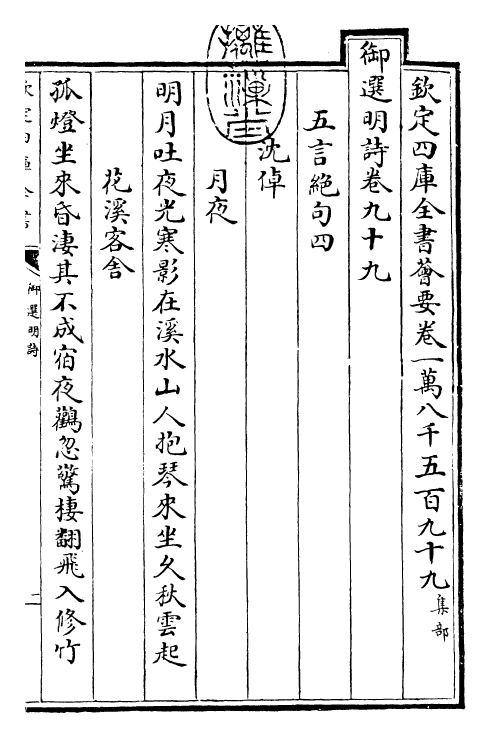 欽定四庫全書薈要卷一萬八千五百九十九 集部
御選明詩卷九十九
五言絕句四
沈倬
月夜
明月吐夜光寒影在溪水山人抱琴來坐久秋雲起
花溪客舍
孤燈坐來昏淒其不成宿夜鸛忽驚棲翻飛入修竹
御選明詩